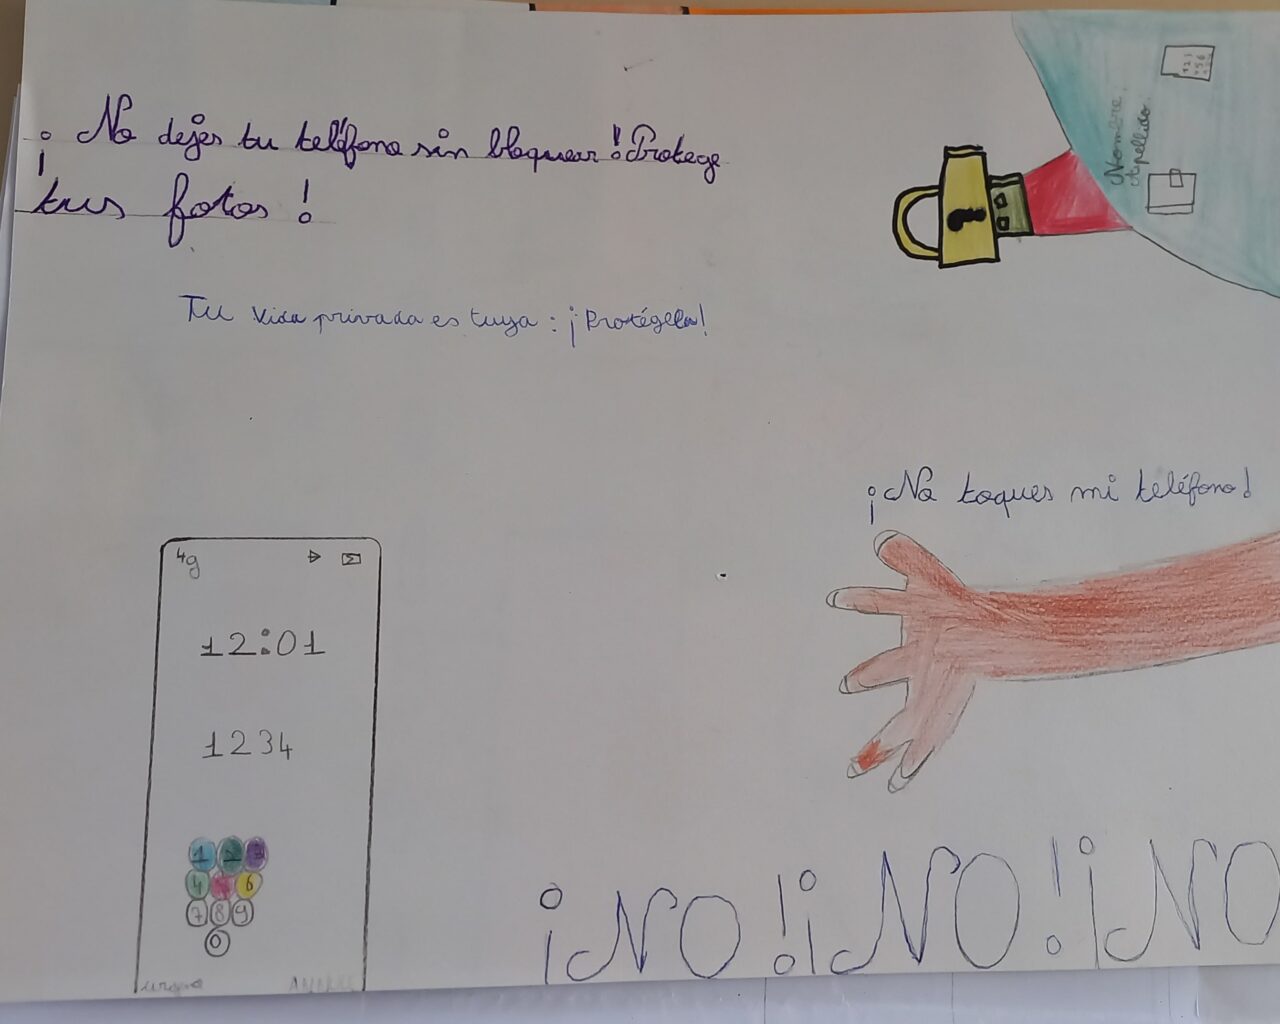 ¡No dejes tu teléfono sin bloquear! Protege
tus fotos!
Nombre
Apellido
Tu vida privada es tuya: ¡Protégela!
¡No toques mi teléfono!
4g
12:01
1234
1 2 3
4 5 6
7 8 9
0
¡NO! ¡NO! ¡NO